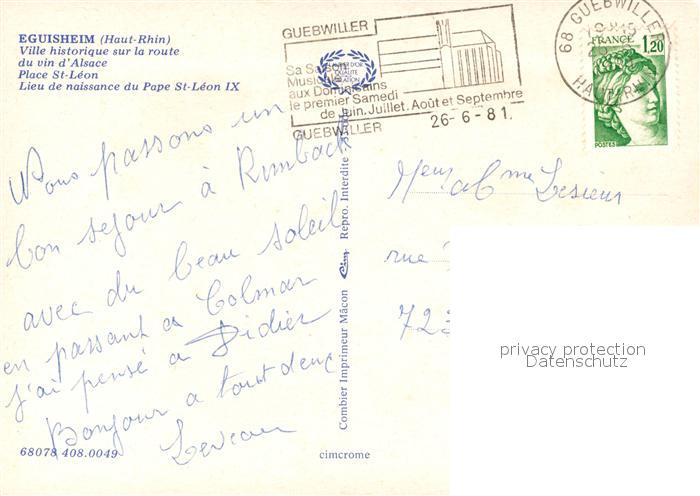 EGUISHEIM (Haut-Rhin)
Ville historique sur la route
du vin d'Alsace
Place St-Léon
Lieu de naissance du Pape St-Léon IX
GUEBWILLER
Sa Saison
Musicale
aux Dominicains
le premier Samedi
de Juin. Juillet. Août et Septembre
GUEBWILLER 26-6-81.
68 GUEBWILLER
HAUT-RHIN
FRANCE
1,20
POSTES
Nous passons un
bon sejour à Rimbach
avec du beau soleil
en passant a Colmar
j'ai pensé a Didier
Bonjour a tout deux
Leveau
Mr et Mme Lesieur
rue
72
privacy protection
Datenschutz
Combier Imprimeur Mâcon Cim Repro. Interdite
68078 408.0049
cimcrome